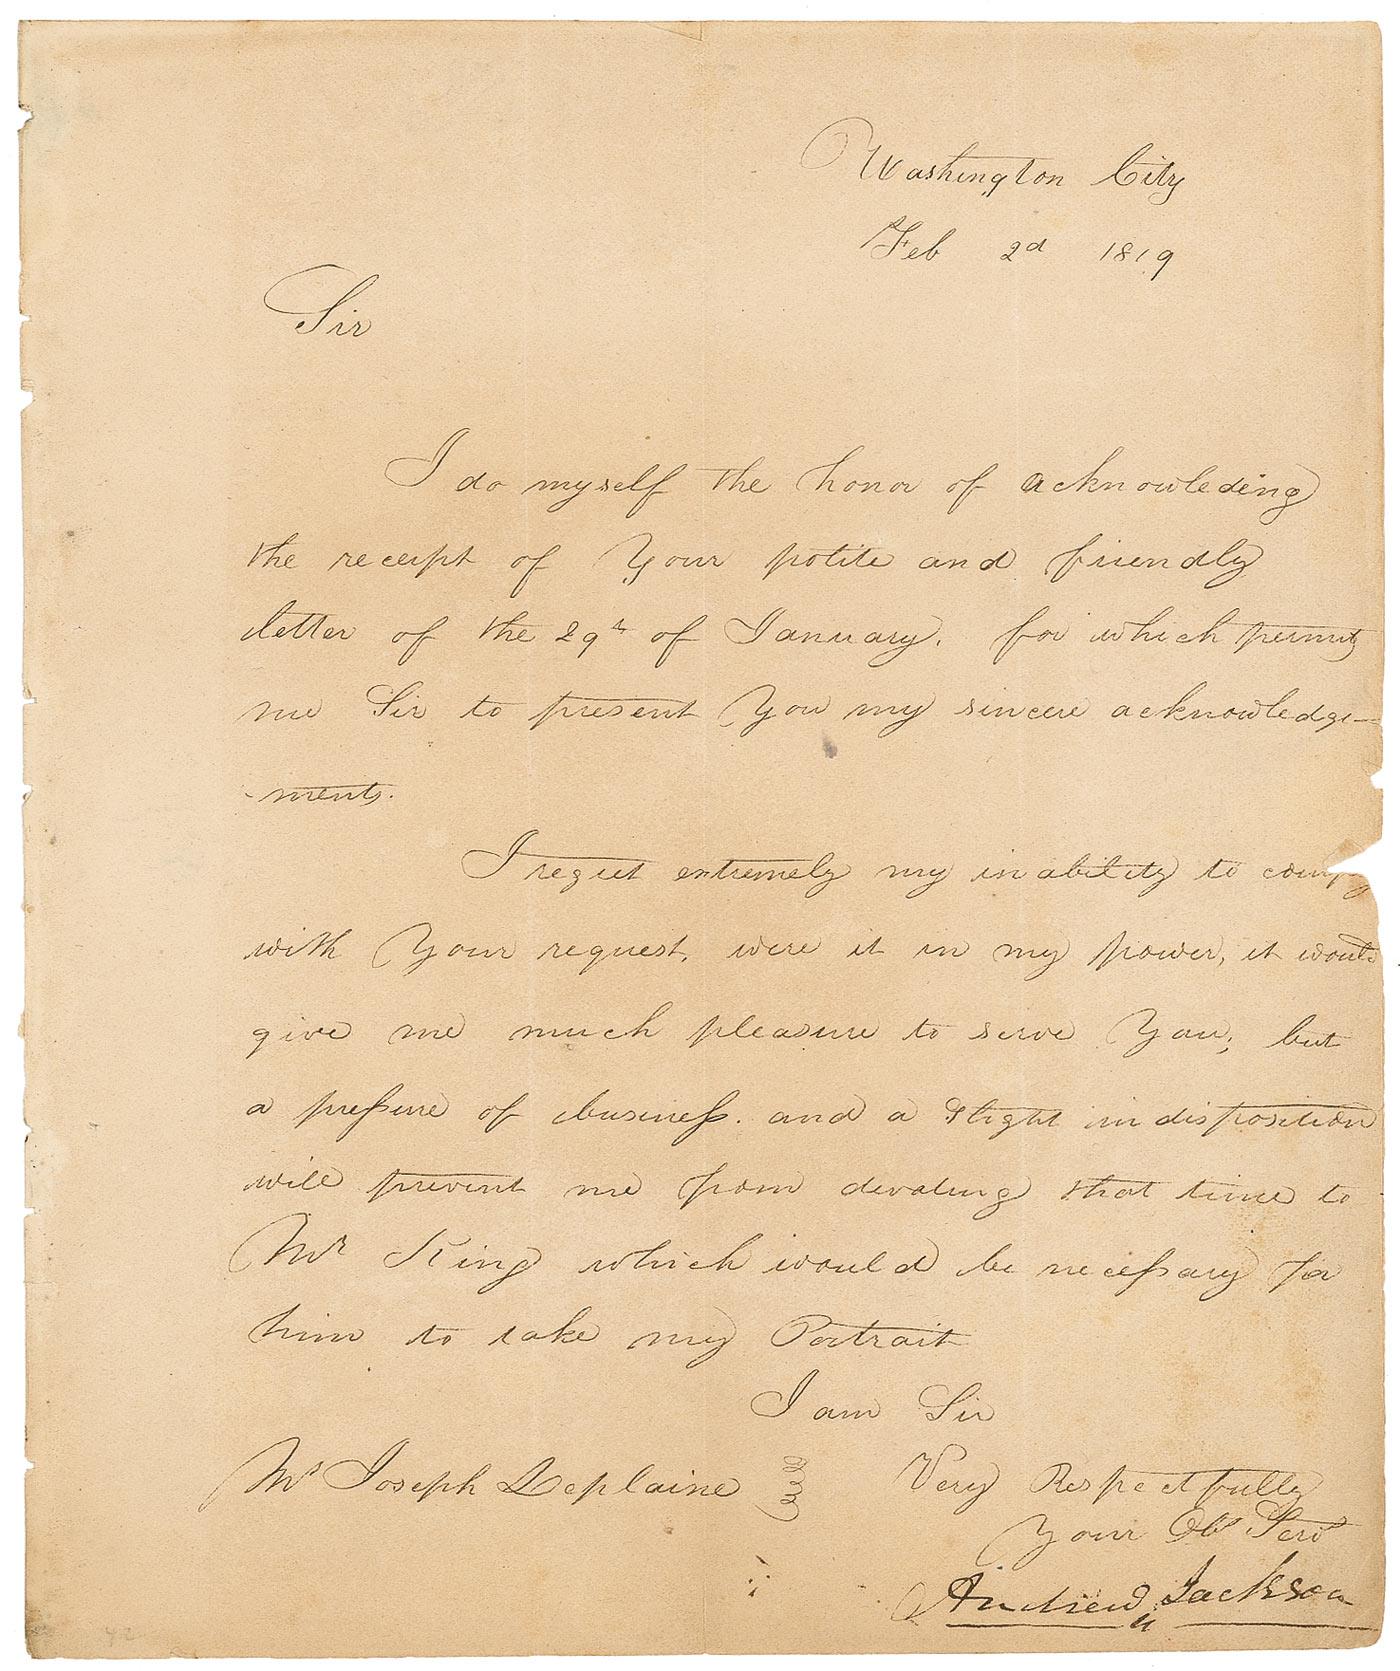 Washington City
Feb 2d 1819
Sir
I do myself the honor of acknowleding
the receipt of Your polite and friendly
letter of the 29th of January. for which permit
me Sir to present You my sincere acknowledge-
-ments.
I regret extremely my inability to comply
with Your request, were it in my power, it would
give me much pleasure to serve You; but
a pressure of business. and a slight indisposition
will prevent me from devoting that time to
Mr King which would be necessary for
him to take my Portrait
I am Sir
Mr Joseph Deplaine Very Respectfully
Your Obt Servt
Andrew Jackson